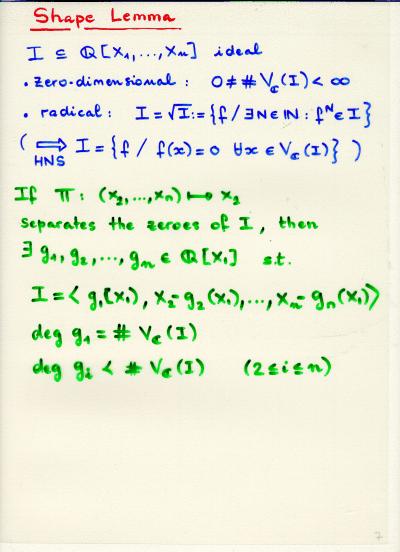 Shape Lemma
I ⊆ ℚ[x₁,...,xₙ] ideal
• zero-dimensional : 0 ≠ # V_ℂ(I) < ∞
• radical : I = √I := {f / ∃ N ∈ ℕ : f^N ∈ I}
( ⟹ HNS I = {f / f(x) = 0 ∀x ∈ V_ℂ(I)} )
If π : (x₂,...,xₙ) ↦ x₂
separates the zeroes of I, then
∃ g₁, g₂, ..., gₙ ∈ ℚ[x₁] s.t.
I = ⟨ g₁(x₁), x₂-g₂(x₁),..., xₙ-gₙ(x₁)⟩
deg g₁ = # V_ℂ(I)
deg gᵢ < # V_ℂ(I) (2 ≤ i ≤ n)
7